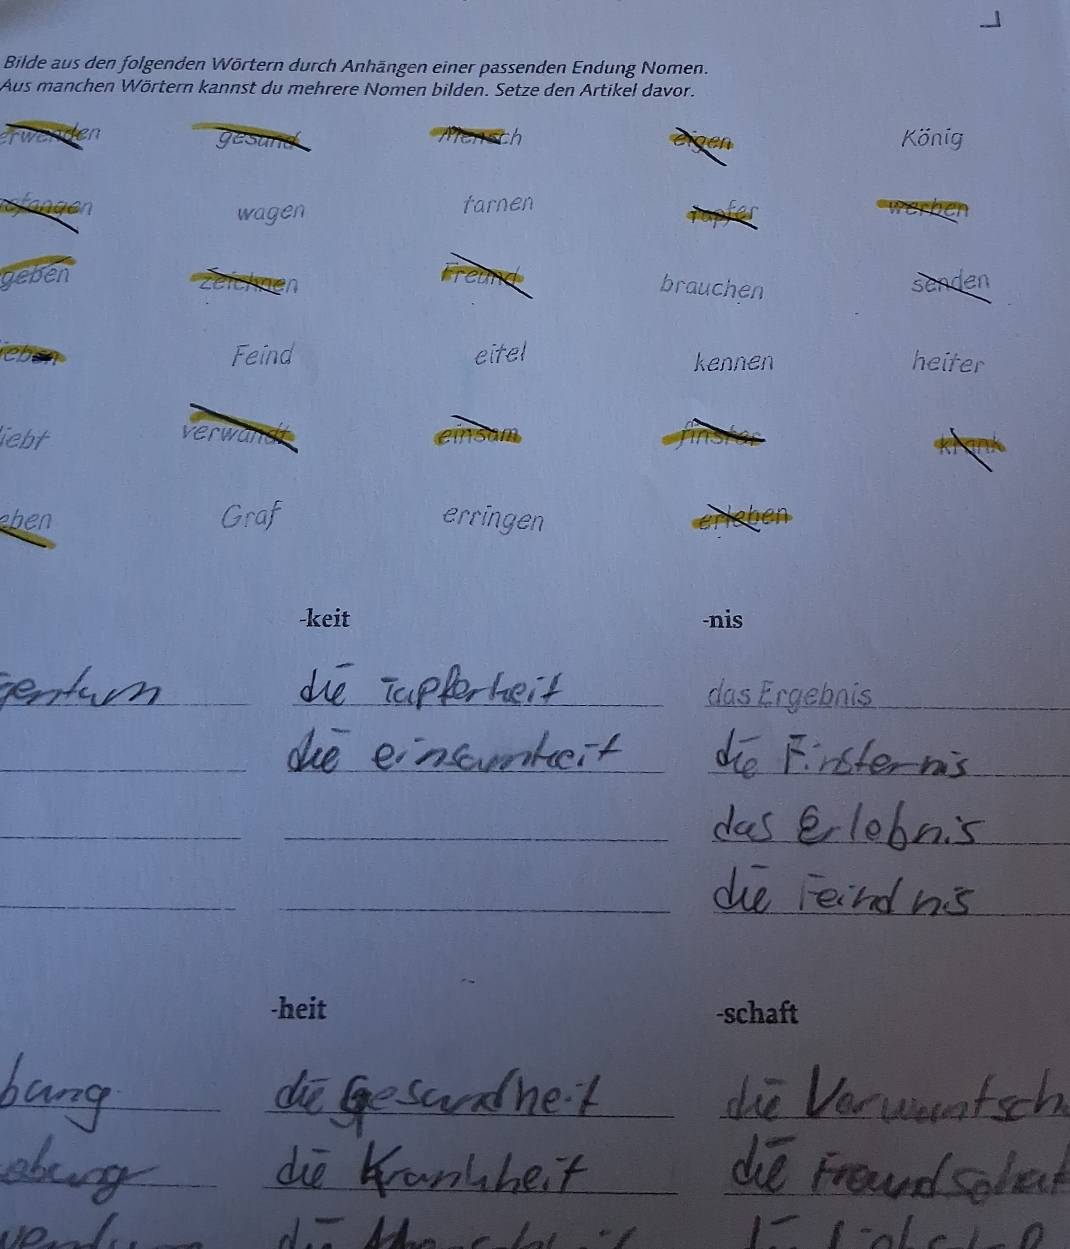 Bilde aus den folgenden Wörtern durch Anhängen einer passenden Endung Nomen.
Aus manchen Wörtern kannst du mehrere Nomen bilden. Setze den Artikel davor.
erwenden gesund Mensch eigen König
wagen tarnen tapfer werben
geben zeichnen Freund brauchen senden
Feind eitel kennen heiter
liebt verwandt einsam finster krank
ehen Graf erringen erleben
-keit -nis
gentum die Tapferkeit das Ergebnis
die einsamkeit die Finsternis
das Erlebnis
die Feindnis
-heit -schaft
bung die Gesundheit die Verwantsch
ebung die Krankheit die Freundschaf